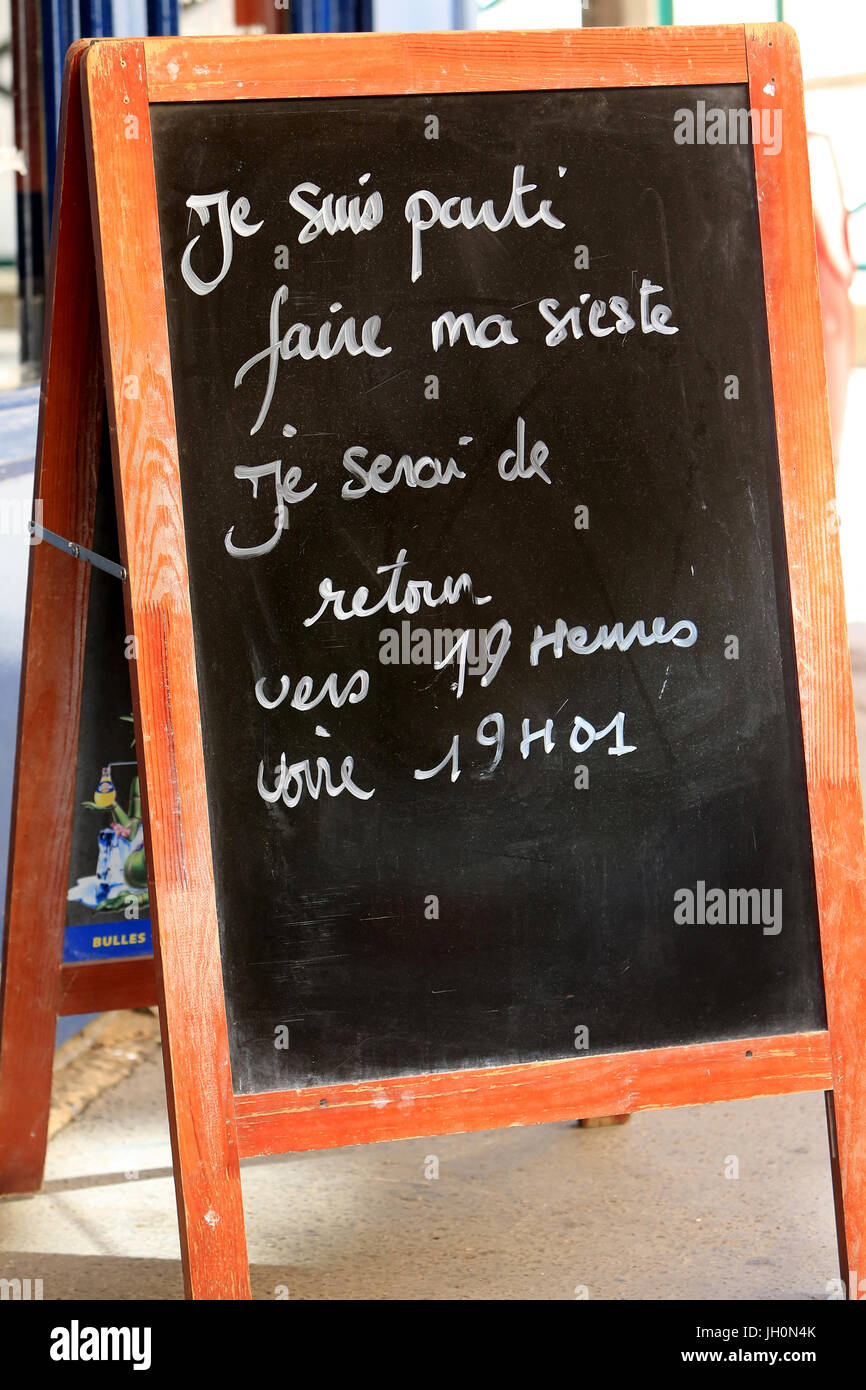 Je suis parti
faire ma sieste
Je serai de
retour
vers 19 Heures
voire 19H01
BULLES
alamy
Image ID: JH0N4K
www.alamy.com